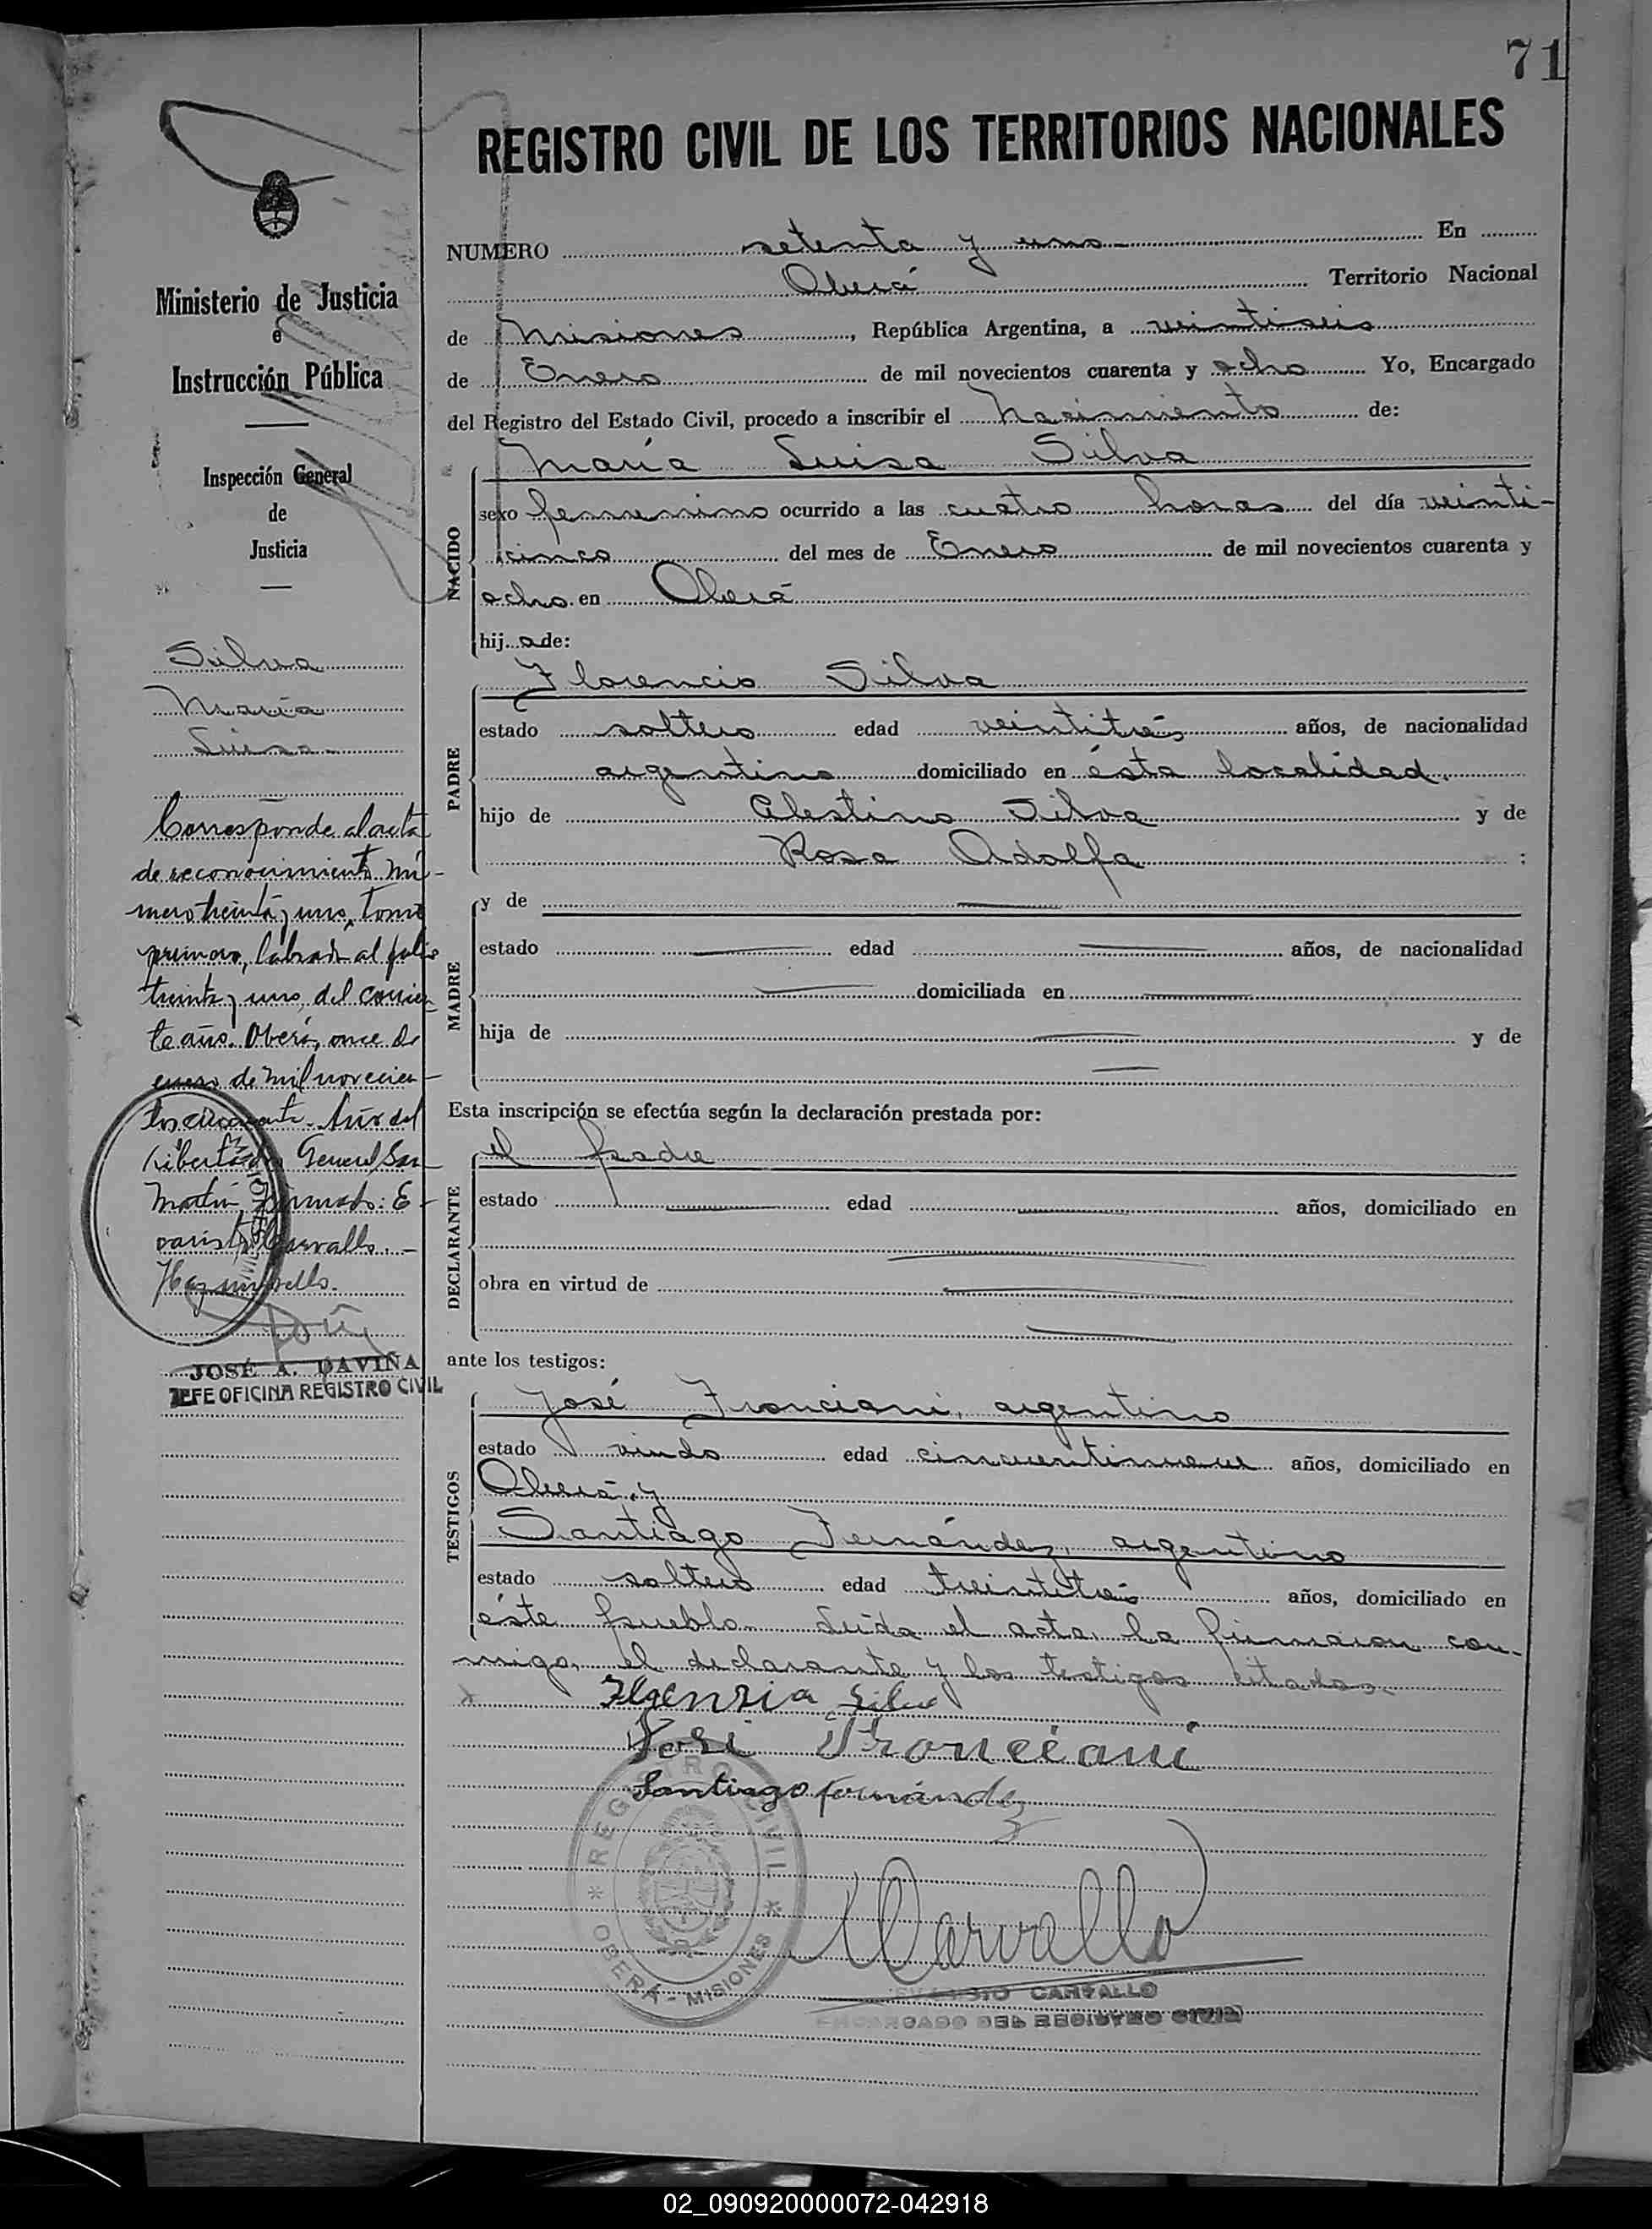 71
REGISTRO CIVIL DE LOS TERRITORIOS NACIONALES
Ministerio de Justicia
e
Instrucción Pública
Inspección General
de
Justicia
Silva
María
Luisa
Corresponde al acta
de reconocimiento nú-
mero treinta y uno, tomo
primero, labrada al folio
treinta y uno, del corrien
te año. Oberá, once de
enero de mil novecien-
tos cincuenta. Año del
Libertador General San
Martín, firmado: E-
varisto Carvallo.-
Hay un sello.
JOSÉ A. DAVIÑA
JEFE OFICINA REGISTRO CIVIL
NUMERO setenta y uno En
Oberá Territorio Nacional
de Misiones, República Argentina, a veintiseis
de Enero de mil novecientos cuarenta y ocho Yo, Encargado
del Registro del Estado Civil, procedo a inscribir el Nacimiento de:
NACIDO
María Luisa Silva
sexo femenino ocurrido a las cuatro horas del día veinti-
cinco del mes de Enero de mil novecientos cuarenta y
ocho en Oberá
hij a de:
PADRE
Florencio Silva
estado soltero edad veintitrés años, de nacionalidad
argentino domiciliado en ésta localidad.
hijo de Celestino Silva y de
Rosa Adolfa :
MADRE
y de
estado edad años, de nacionalidad
domiciliada en
hija de y de
Esta inscripción se efectúa según la declaración prestada por:
DECLARANTE
el padre
estado edad años, domiciliado en
obra en virtud de
ante los testigos:
TESTIGOS
José Tronciani, argentino
estado viudo edad cincuentinueve años, domiciliado en
Oberá, y
Santiago Fernández, argentino
estado soltero edad treintitrés años, domiciliado en
éste pueblo. Leída el acta, la firmaron con-
migo, el declarante y los testigos citados.
Silva
José Tronciani
Santiago Fernández
REGISTRO CIVIL
OBERÁ - MISIONES
Carvallo
CARVALLO
ENCARGADO DEL REGISTRO CIVIL
02_090920000072-042918